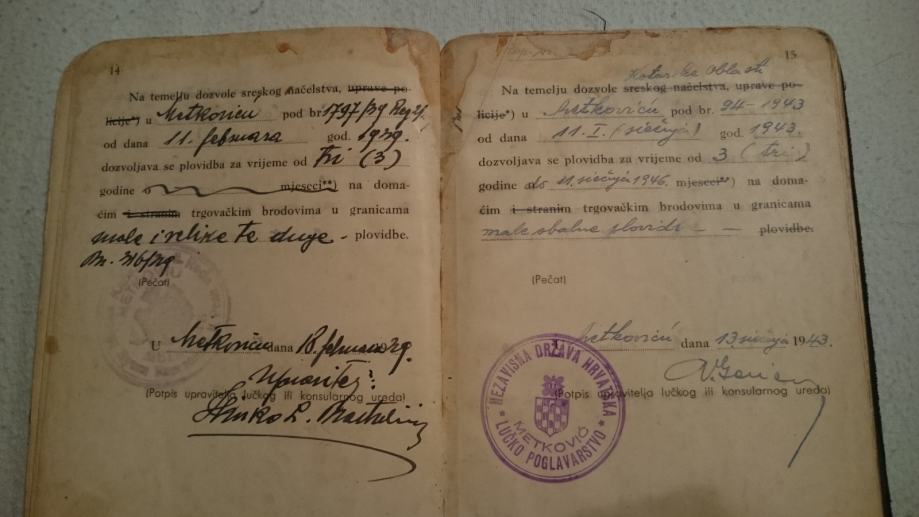 14
Na temelju dozvole sreskog načelstva, uprave po-
licije*) u Metkoviću pod br. 1797/39
od dana 11. februara god. 1939.
dozvoljava se plovidba za vrijeme od tri (3)
godine mjeseci**) na doma-
ćim i stranim trgovačkim brodovima u granicama
male i velike te duge - plovidbe.
(Pečat)
U Metkoviću dana 18. februara 39.
Upravitelj:
(Potpis upravitelja lučkog ili konsularnog ureda)
15
Kotarske Oblasti
Na temelju dozvole sreskog načelstva, uprave po-
licije*) u Metkoviću pod br. 94-1943
od dana 11. I. (siečnja) god. 1943.
dozvoljava se plovidba za vrijeme od 3 (tri)
godine do 11. siečnja 1946. mjeseci**) na doma-
ćim i stranim trgovačkim brodovima u granicama
male obalne plovidbe - - plovidbe.
(Pečat)
Metkoviću dana 13 siečnja 1943.
(Potpis upravitelja lučkog ili konsularnog ureda)
NEZAVISNA DRŽAVA HRVATSKA
METKOVIĆ
LUČKO POGLAVARSTVO